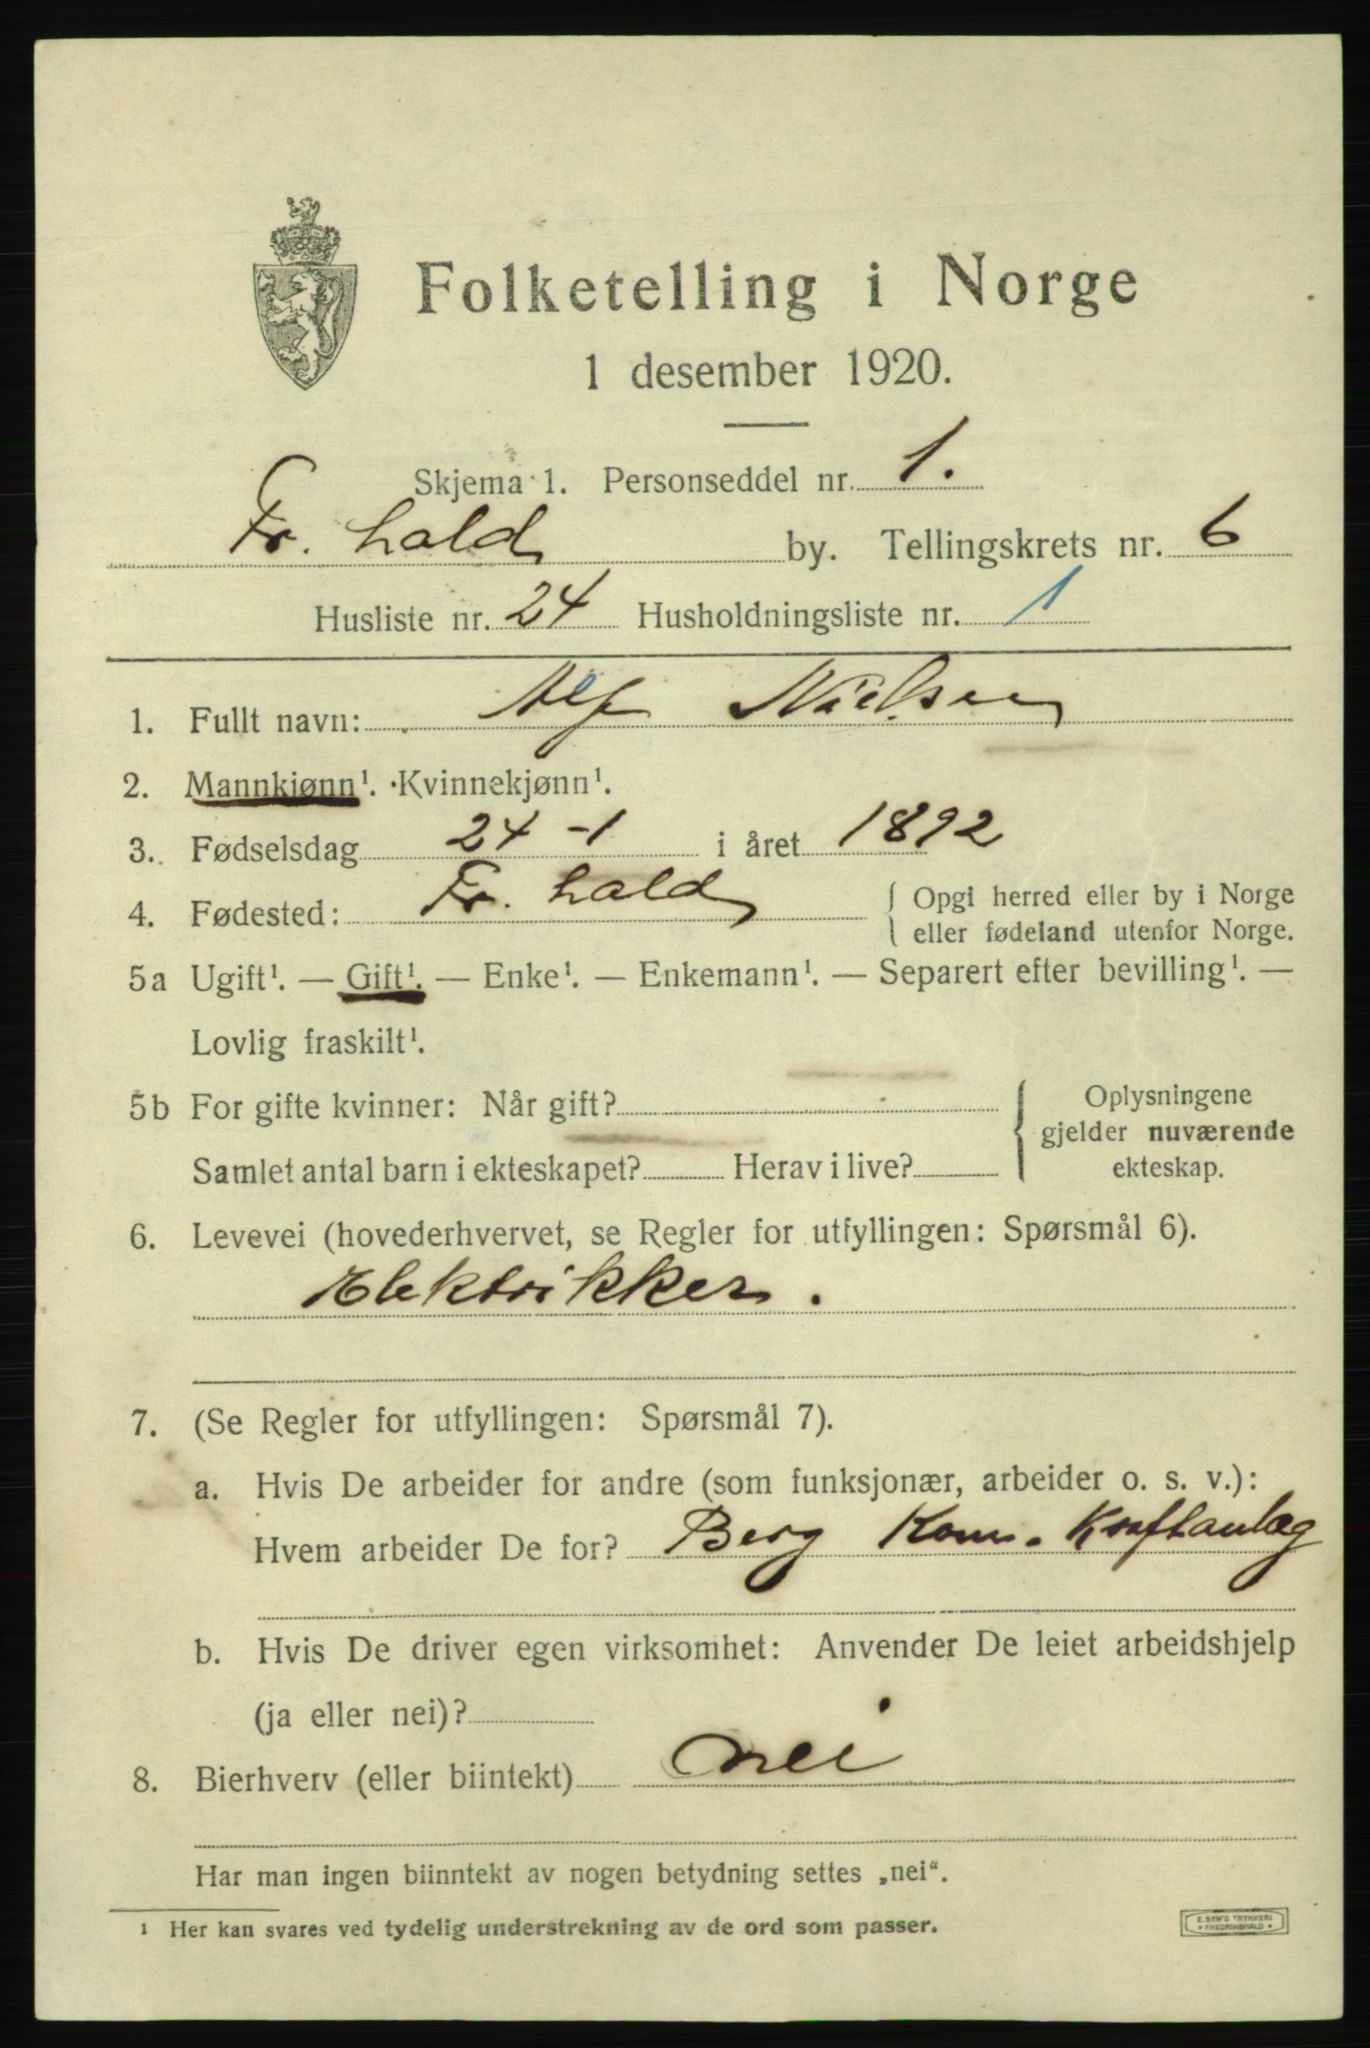 Folketelling i Norge
1 desember 1920.
Skjema 1. Personseddel nr. 1.
Fr. hald by. Tellingskrets nr. 6
Husliste nr. 24 Husholdningsliste nr. 1
1. Fullt navn: Alf Nielsen
2. Mannkjønn¹. Kvinnekjønn¹.
3. Fødselsdag 24-1 i året 1892
4. Fødested: Fr. hald { Opgi herred eller by i Norge
eller fødeland utenfor Norge.
5a Ugift¹. — Gift¹. — Enke¹. — Enkemann¹. — Separert efter bevilling¹. —
Lovlig fraskilt¹.
5b For gifte kvinner: Når gift? { Oplysningene
gjelder nuværende
ekteskap.
Samlet antal barn i ekteskapet? Herav i live?
6. Levevei (hovederhvervet, se Regler for utfyllingen: Spørsmål 6).
Elektrikker.
7. (Se Regler for utfyllingen: Spørsmål 7).
a. Hvis De arbeider for andre (som funksjonær, arbeider o. s. v.):
Hvem arbeider De for? Berg Kom. Kraftanlæg
b. Hvis De driver egen virksomhet: Anvender De leiet arbeidshjelp
(ja eller nei)?
8. Bierhverv (eller biintekt) nei
Har man ingen biinntekt av nogen betydning settes „nei“.
¹ Her kan svares ved tydelig understrekning av de ord som passer.
E. SEM'S TRYKKERI
• FREDRIKSHALD •